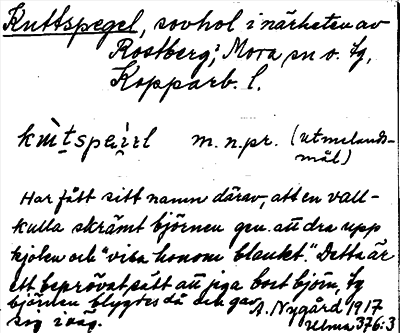 Kuttspegel, sovhol i närheten av
Rostberg; Mora sn o. tg,
Kopparb. l.
m. n.pr. (utmelands-
mål)
Har fått sitt namn därav, att en vall-
kulla skrämt björnen gen. att dra upp
kjolen och "visa honom blanket." Detta är
ett beprövat sätt att jaga bort björn, ty
björnen blygdes då och gav
sig iväg.
A. Nygård 1917
Ulma 376:3